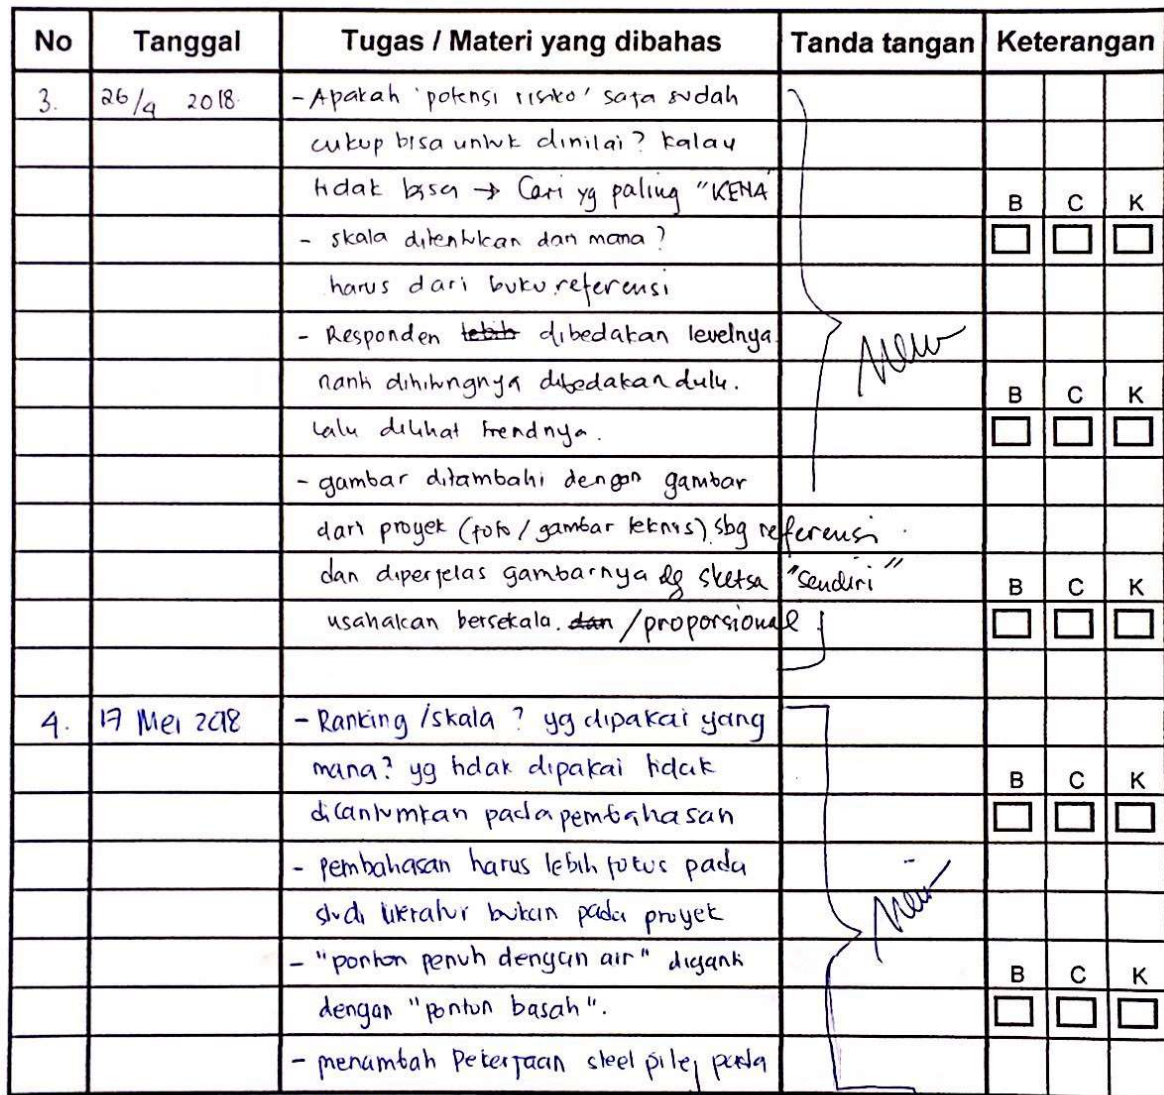 No Tanggal Tugas / Materi yang dibahas Tanda tangan Keterangan
3. 26/4 2018. - Apakah 'potensi risiko' saja sudah
cukup bisa untuk dinilai? kalau
tidak bisa → Cari yg paling "KENA"
B C K
- skala ditentukan dari mana?
harus dari buku referensi
- Responden lebih dibedakan levelnya
nanti dihitungnya dibedakan dulu.
B C K
lalu dilihat trendnya.
- gambar ditambahi dengan gambar
dari proyek (foto / gambar teknis) sbg referensi.
dan diperjelas gambarnya dg sketsa "sendiri"
B C K
usahakan bersekala. dan / proporsional
4. 17 Mei 2018 - Ranking / skala ? yg dipakai yang
mana? yg tidak dipakai tidak
B C K
dicantumkan pada pembahasan
- pembahasan harus lebih fokus pada
studi literatur bukan pada proyek
- "ponton penuh dengan air" diganti
B C K
dengan "ponton basah".
- menambah Pekerjaan steel pile, pada